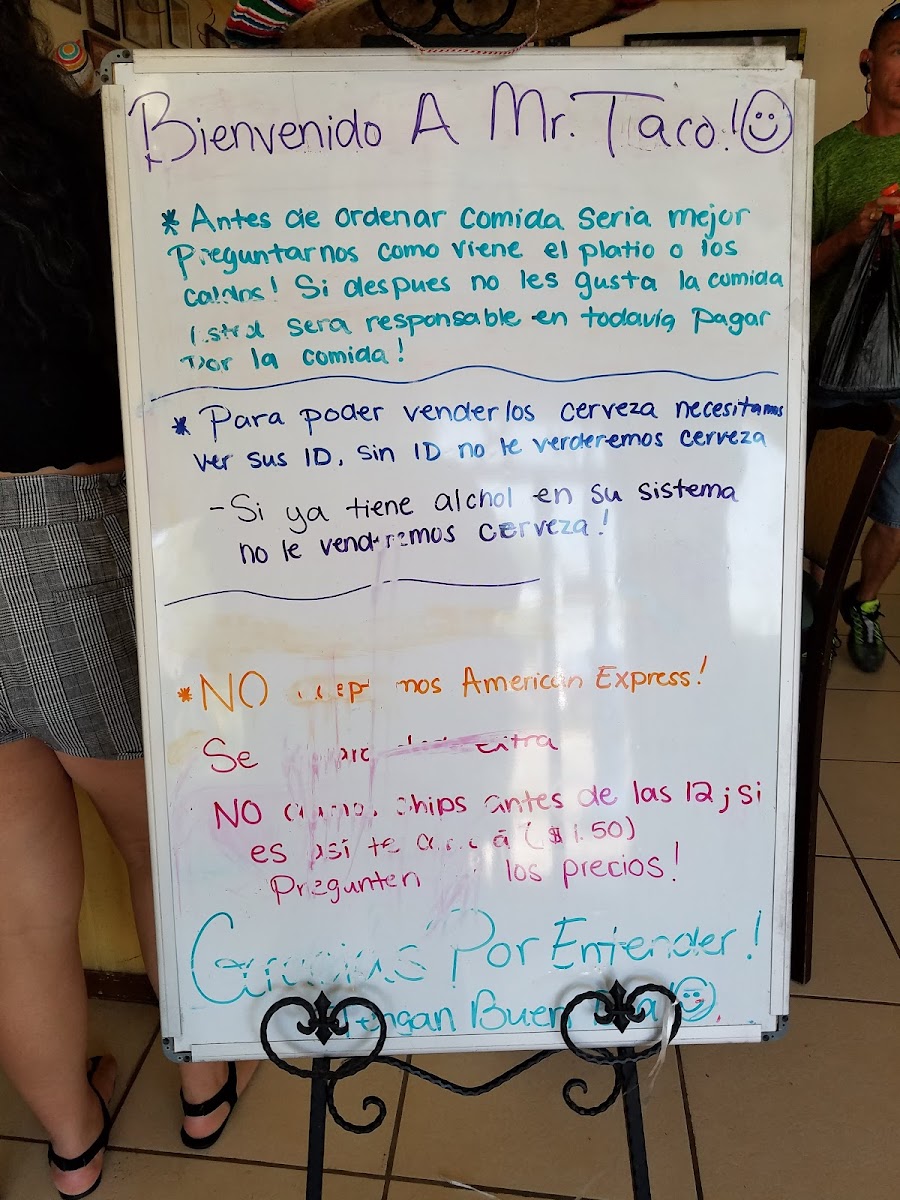 Bienvenido A Mr. Taco!
* Antes de ordenar comida seria mejor
Preguntarnos como viene el platio o los
caldos! Si despues no les gusta la comida
sera responsable en todavia pagar
Por la comida!
* Para poder venderlos cerveza necesitamos
ver sus ID, sin ID no le venderemos cerveza
- Si ya tiene alchol en su sistema
no le venderemos cerveza!
* NO American Express!
Se
NO chips antes de las 12; si
es asi te ($1.50)
Pregunten los precios!
Gracias Por Entender!
Tengan Buen Dia!